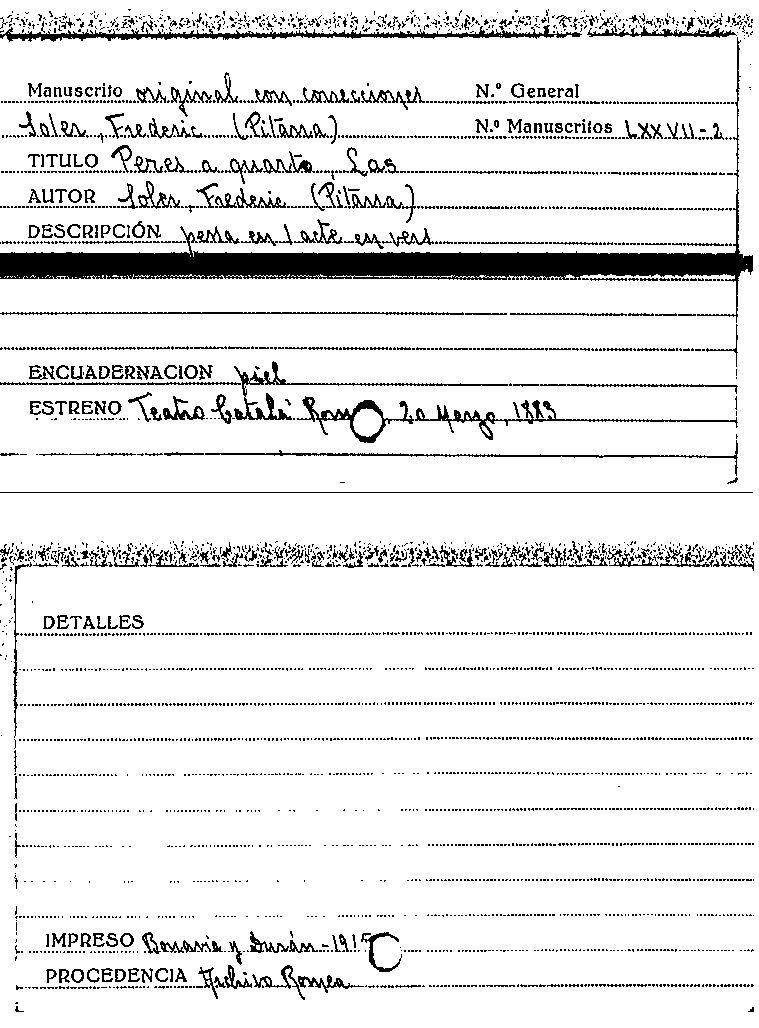 Manuscrito original con correcciones N.º General
Soler, Frederic (Pitarra) N.º Manuscritos LXXVII-2
TITULO Peres a quarto, Las
AUTOR Soler, Frederic (Pitarra)
DESCRIPCIÓN pessa en 1 acte en vers
ENCUADERNACION piel
ESTRENO Teatro Català Romea, 20 Marzo, 1883
DETALLES
IMPRESO Bonavia y Durán - 1915
PROCEDENCIA Archivo Romea